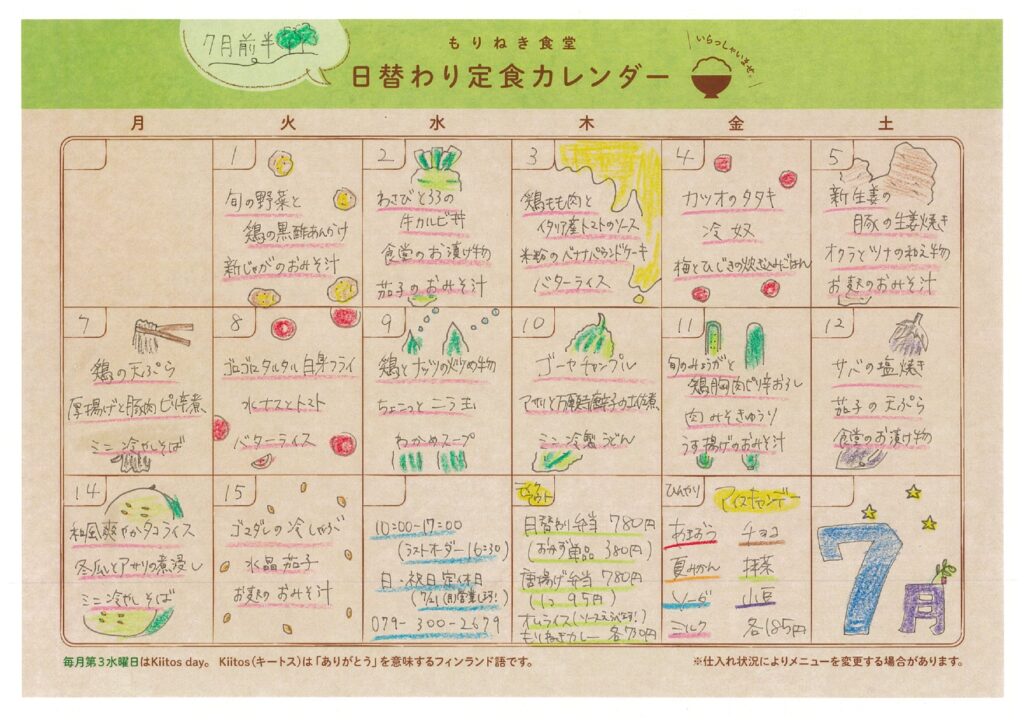 7月前半
もりねき食堂
日替わり定食カレンダー
いらっしゃいませ。
月 火 水 木 金 土
1
旬の野菜と
鶏の黒酢あんかけ
新じゃがのおみそ汁
2
わさびと33の
牛カルビ丼
食堂のお漬け物
茄子のおみそ汁
3
鶏もも肉と
イタリア産トマトのソース
米粉のバナナパウンドケーキ
バターライス
4
カツオのタタキ
冷奴
梅とひじきの炊き込みごはん
5
新生姜の
豚の生姜焼き
オクラとツナの和え物
お麩のおみそ汁
7
鶏の天ぷら
厚揚げと豚肉ピリ辛煮
ミニ冷やしそば
8
ゴロゴロタルタル白身フライ
水ナスとトマト
バターライス
9
鶏とナッツの炒め物
ちょこっとニラ玉
わかめスープ
10
ゴーヤチャンプル
アサリと万願寺唐辛子の土佐煮
ミニ冷製うどん
11
旬のみょうがと
鶏胸肉ピリ辛おろし
肉みそきゅうり
うす揚げのおみそ汁
12
サバの塩焼き
茄子の天ぷら
食堂のお漬け物
14
和風爽やかタコライス
冬瓜とアサリの煮浸し
ミニ冷やしそば
15
ゴマダレの冷しゃぶ
水晶茄子
お麩のおみそ汁
10:00-17:00
(ラストオーダー16:30)
日・祝日定休日
(7/21(月)営業します!)
079-300-2679
テイクアウト
日替わり弁当 780円
(おかず単品 380円)
唐揚げ弁当 780円
(1コ 95円)
オムライス(ソースえらべます!)
もりねきカレー 各770円
ひんやり アイスキャンデー
あまおう チョコ
夏みかん 抹茶
ソーダ 小豆
ミルク 各185円
7月
毎月第3水曜日はKiitos day。 Kiitos（キートス）は「ありがとう」を意味するフィンランド語です。
※仕入れ状況によりメニューを変更する場合があります。